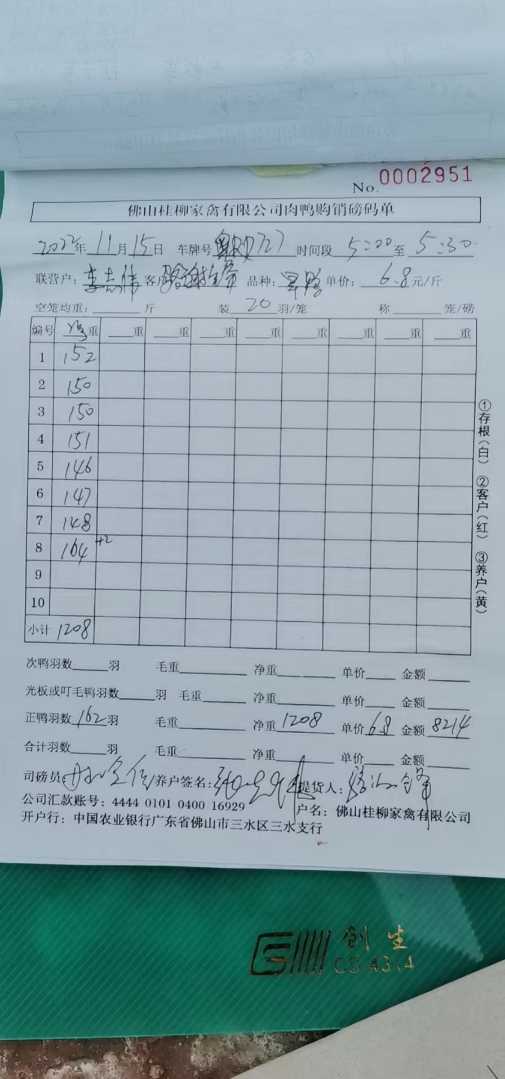 No. 0002951
佛山桂柳家禽有限公司肉鸭购销磅码单
2022年11月15日 车牌号 727 时间段 5:00至5:30
联营户: 李志伟 客户 品种: 单价: 6.8元/斤
空笼均重: 斤 装20羽/笼 称 笼/磅
编号 重 重 重 重 重 重 重 重 重
1 152
2 150
3 150
4 151
5 146
6 147
7 148
8 164 +2
9
10
小计 1208
①存根(白) ②客户(红) ③养户(黄)
次鸭羽数 羽 毛重 净重 单价 金额
光板或叮毛鸭羽数 羽 毛重 净重 单价 金额
正鸭羽数162羽 毛重 净重1208 单价6.8 金额8214
合计羽数 羽 毛重 净重 单价 金额
司磅员: 养户签名: 提货人:
公司汇款账号: 4444 0101 0400 16929 户名: 佛山桂柳家禽有限公司
开户行: 中国农业银行广东省佛山市三水区三水支行
创生
CS-A314